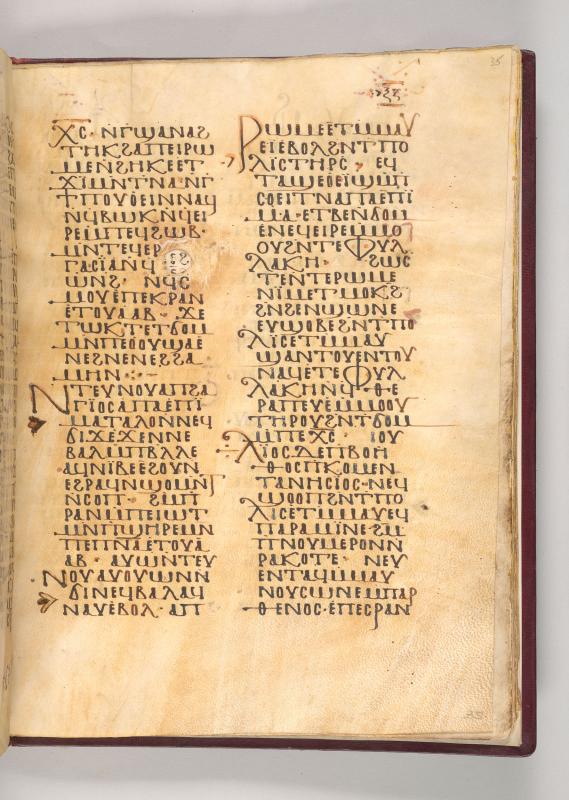 35
ⲭ̅ⲥ̅· ⲛ̅ⲅ̅ϣⲁⲛⲁϩ
ⲧⲏⲕ ϩⲁⲡⲉⲓⲣⲱ
ⲙⲉ ⲛ̅ϩⲏⲕⲉ ⲉⲧ
ϫⲓ ⲙⲛ̅ⲧⲛⲁ ⲛ̅ⲅ
ϯ ⲡⲟⲩⲟ̇ⲉⲓⲛ ⲛⲁϥ
ⲛ̅ϥⲃⲱⲕ ⲛ̅ϥⲉⲓ
ⲣⲉ ⲙ̅ⲡⲉϥϩⲱⲃ·
ⲙⲛ̅ⲧⲉϥⲉⲣ
ⲅⲁⲥⲓ̈ⲁ ⲛ̅ϥ
ⲱⲛϩ̅· ⲛϥ̅ⲥ
ⲙⲟⲩ ⲉ̇ⲡⲉⲕⲣⲁⲛ
ⲉⲧⲟⲩⲁⲁⲃ· ϫⲉ
ⲧⲱⲕ ⲧⲉ ⲧϭⲟⲙ
ⲙⲛ̅ⲡⲉⲟⲟⲩ ϣⲁⲉ̇
ⲛⲉϩ ⲛⲉⲛⲉϩ ϩⲁ
ⲙⲏⲛ·
ⲛ̅ⲧⲉⲩⲛⲟⲩ ⲁⲡϩⲁ
ⲅⲓ̈ⲟⲥ ⲁⲡⲁ ⲉⲡⲓ
ⲙⲁ ⲧⲁⲗⲟ ⲛ̅ⲛⲉϥ
ϭⲓϫ ⲉ̇ϫⲉⲛⲛⲉ
ⲃⲁⲗ ⲙ̅ⲡⲃⲗ̅ⲗⲉ
ⲁϥⲛⲓ̈ⲃⲉ ⲉϩⲟⲩⲛ
ⲉϩⲣⲁϥ ⲛ̅ϣⲟⲙⲛ̅ⲧ
ⲛ̅ⲥⲟⲡ· ϩⲙ̅ⲡ
ⲣⲁⲛ ⲙ̅ⲡⲉⲓⲱⲧ
ⲙⲛ̅ⲡϣⲏⲣⲉ ⲙⲛ̅
ⲡⲉⲡ̅ⲛ̅ⲁ̅ ⲉⲧⲟⲩⲁ
ⲁⲃ· ⲁⲩⲱ ⲛ̅ⲧⲉⲩ
ⲛⲟⲩ ⲁⲩⲟⲩⲱⲛ ⲛ̅
ϭⲓ ⲛⲉϥⲃⲁⲗ ⲁϥ
ⲛⲁⲩ ⲉ̇ⲃⲟⲗ· ⲁⲡ
ⲣⲱⲙⲉ ⲉⲧⲙ̅ⲙⲁⲩ
ⲉⲓ ⲉ̇ⲃⲟⲗ ϩⲛ̅ⲧⲡⲟ
ⲗⲓⲥ ⲧⲏⲣⲥ̅· ⲉϥ
ⲧⲁϣⲉⲟⲉⲓ̈ϣ ⲙ̅ⲡ
ⲥⲟⲉⲓⲧ ⲛ̅ⲁⲡⲁ ⲉⲡⲓ
ⲙⲁ· ⲉⲧⲃⲉⲛ̅ϭⲟⲙ
ⲉ̇ⲛⲉϥⲉⲓⲣⲉ ⲙ̅ⲙⲟ
ⲟⲩ ϩⲛ̅ⲧⲉⲫⲩⲗ
ⲗⲁⲕⲏ· ϩⲱⲥ
ⲧⲉ ⲛ̅ⲧⲉⲣⲱⲙⲉ
ⲛⲓⲙ ⲉⲧⲙⲟⲕϩ
ϩⲛ̅ϩⲉⲛϣⲱⲛⲉ
ⲉⲩϣⲟⲃⲉ ϩⲛ̅ⲧⲡⲟ
ⲗⲓⲥ ⲉⲧⲙ̅ⲙⲁⲩ
ϣⲁⲛⲧⲟⲩⲉⲛⲧⲟⲩ
ⲛⲁϥ ⲉ̇ⲧⲉⲫⲩⲗ
ⲗⲁⲕⲏ ⲛϥ̅·ⲑⲉ
ⲣⲁⲡⲉⲩⲉ ⲙ̅ⲙⲟⲟⲩ
ⲧⲏⲣⲟⲩ ϩⲛ̅ⲧϭⲟⲙ
ⲙ̅ⲡⲉⲭ̅ⲥ̅· ⲓ̈ⲟⲩ
ⲗⲓ̈ⲟⲥ ⲇⲉ ⲡⲃⲟⲏ
ⲑⲟⲥ ⲡⲕⲟⲙⲉⲛ
ⲧⲁⲛⲏⲥⲓⲟⲥ· ⲛⲉϥ
ϣⲟⲟⲡ ϩⲛ̅ⲧⲡⲟ
ⲗⲓⲥ ⲉⲧⲙ̅ⲙⲁⲩ ⲉϥ
ⲡⲁⲣⲁⲙⲓ̈ⲛⲉ ϩⲙ̅
ⲡⲛⲟⲩⲙⲉⲣⲟⲛ ⲛ̅
ⲣⲁⲕⲟⲧⲉ· ⲛⲉⲩ
ⲉⲛⲧⲁϥ ⲙ̅ⲙⲁⲩ
ⲛⲟⲩⲥⲱⲛⲉ ⲙ̅ⲡⲁⲣ
ⲑⲉⲛⲟⲥ· ⲉ̇ⲡⲉⲥⲣⲁⲛ